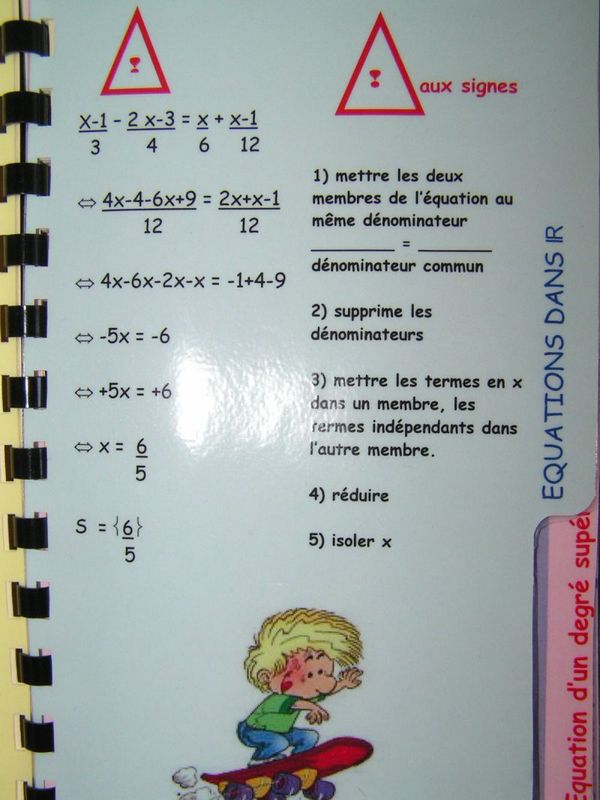 ! !
aux signes
x-1 - 2 x-3 = x + x-1
3 4 6 12
⇔ 4x-4-6x+9 = 2x+x-1
12 12
⇔ 4x-6x-2x-x = -1+4-9
⇔ -5x = -6
⇔ +5x = +6
⇔ x = 6
5
S = {6}
5
1) mettre les deux
membres de l'équation au
même dénominateur
________ = ________
dénominateur commun
2) supprime les
dénominateurs
3) mettre les termes en x
dans un membre, les
termes indépendants dans
l'autre membre.
4) réduire
5) isoler x
EQUATIONS DANS IR
Equation d'un degré supé